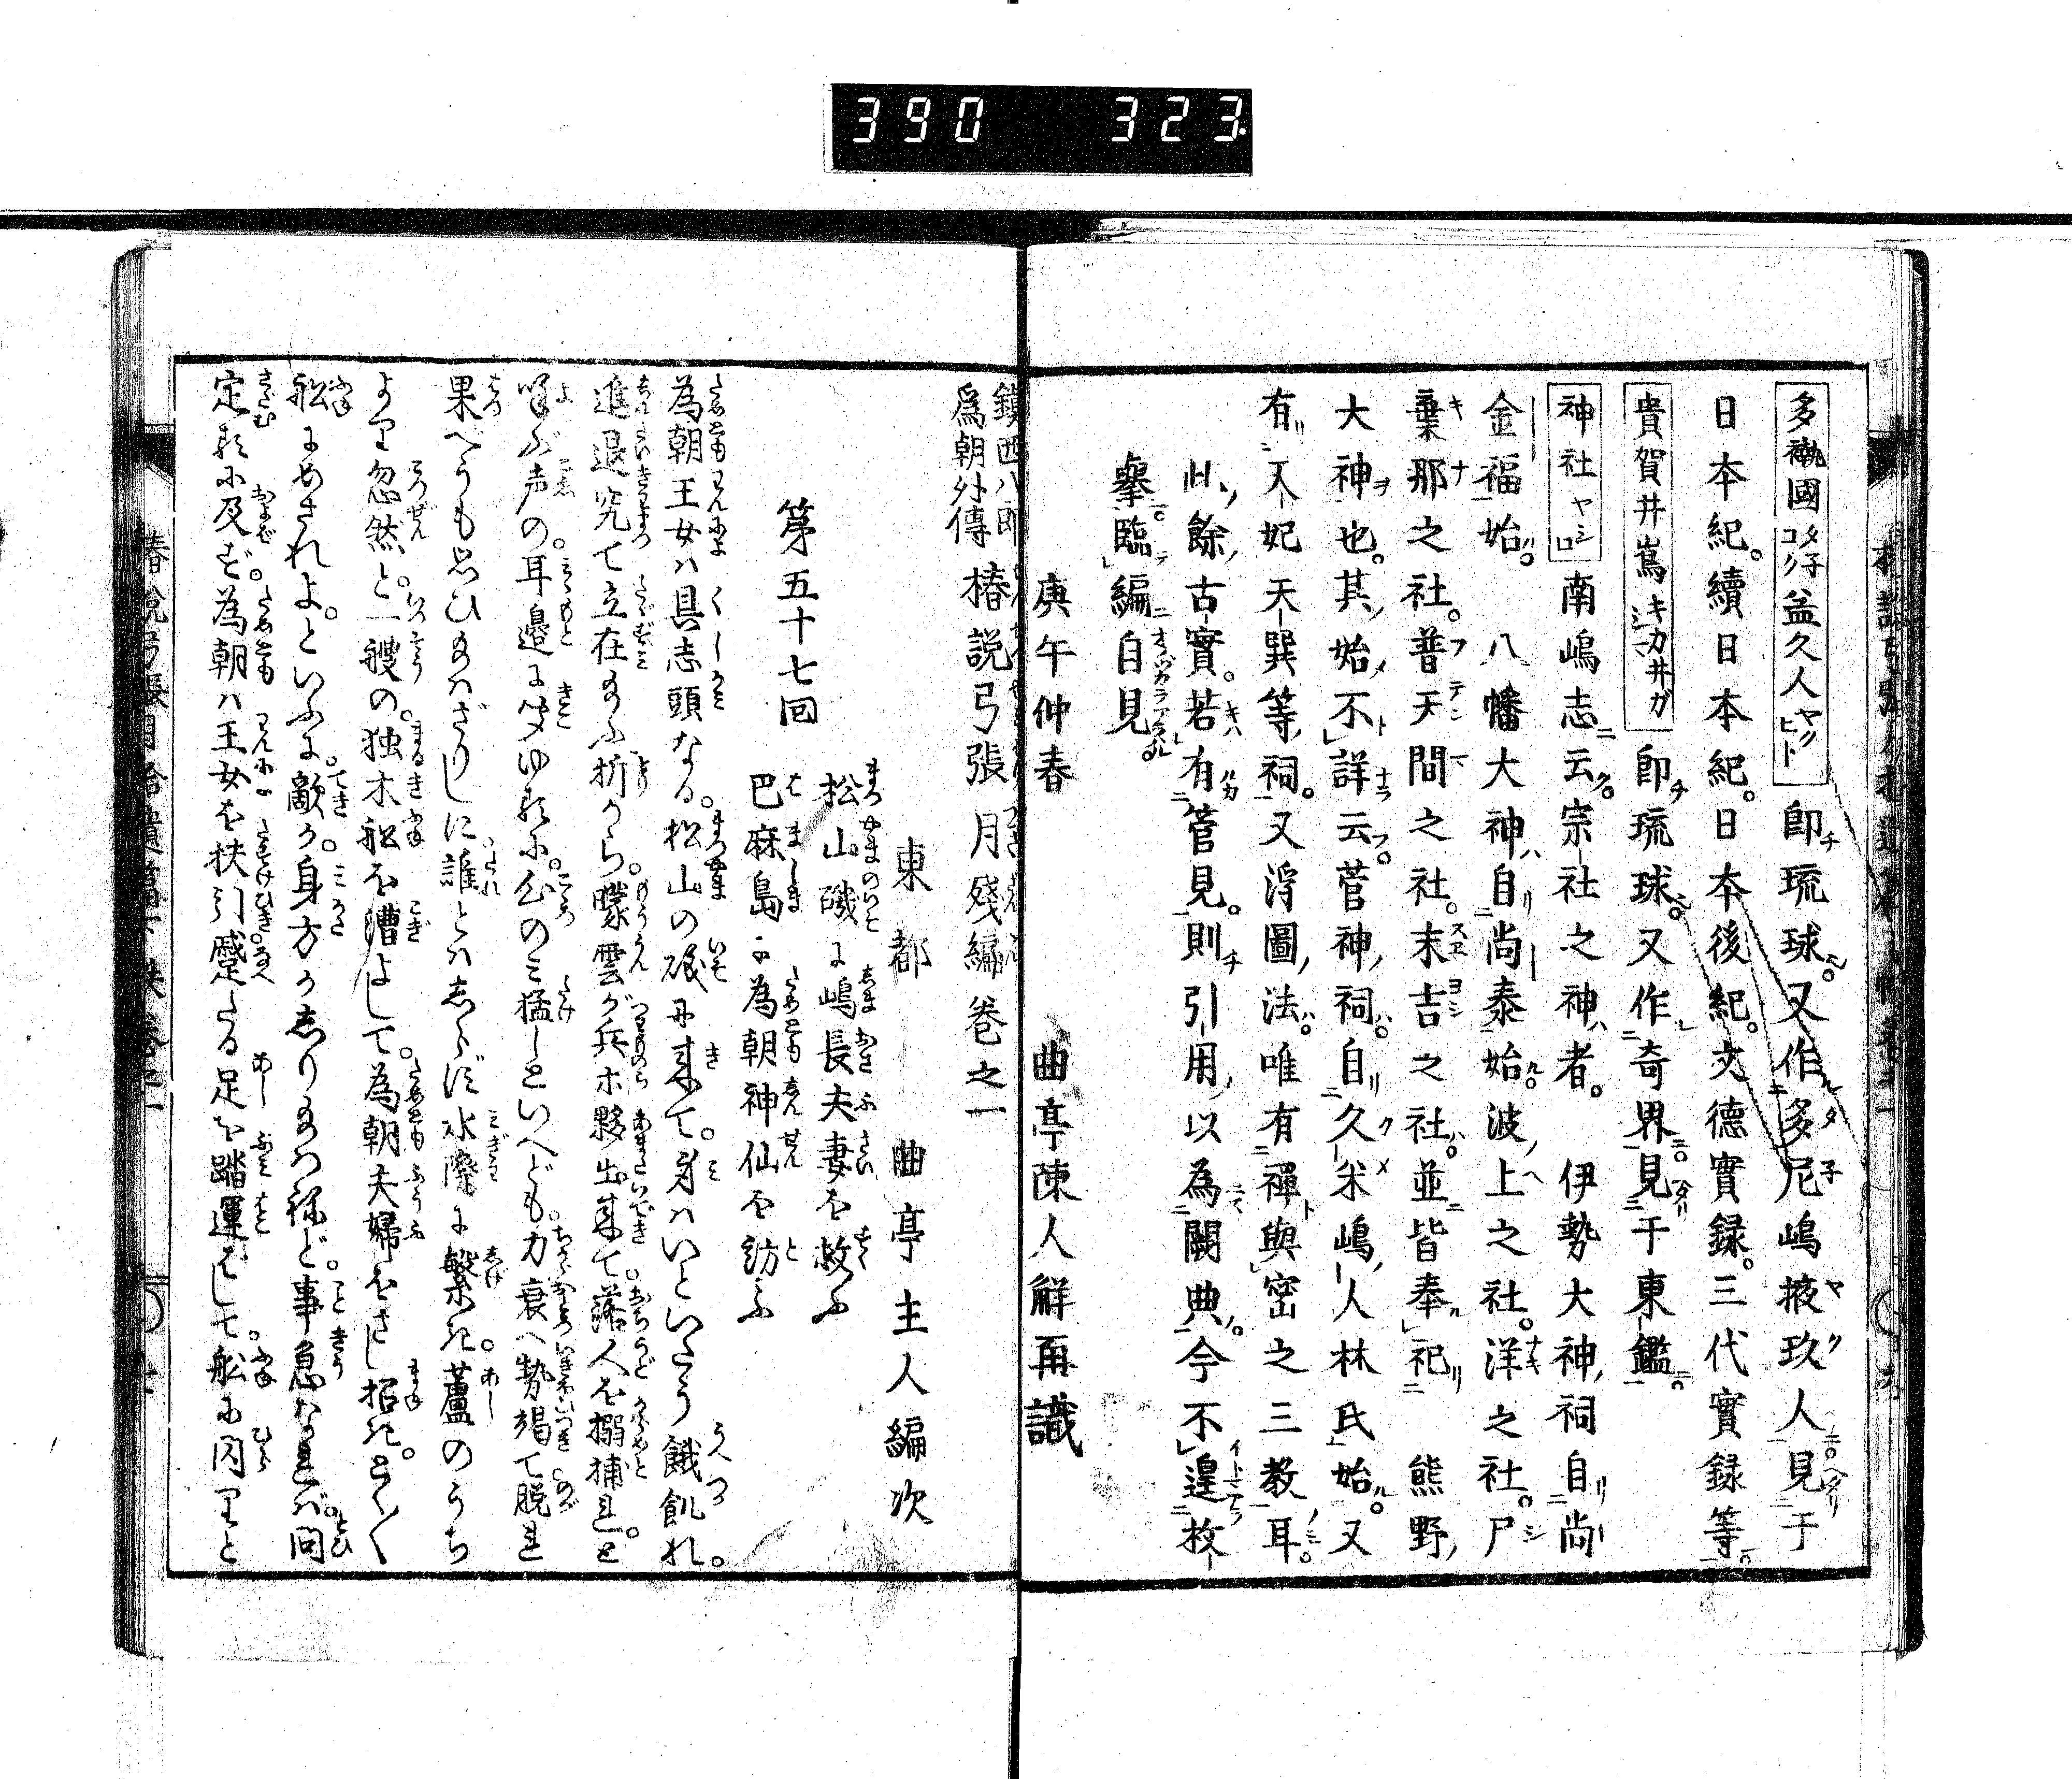 390 323
多褹國 タネ コク 益久人 ヤク ヒト 即琉球。又作多尼嶋掖玖人見于
日本紀。續日本紀。日本後紀。文德實録。三代實録等。
貴賀井嶌 キカ井ガ シマ 即琉球。又作奇界見于東鑑。
神社 ヤシロ 南嶋志云。宗社之神者。 伊勢大神祠自尚
金福始。 八幡大神自尚泰始。波上之社。洋之社。尸
棄那之社。普天間之社。末吉之社。並皆奉祀 熊野
大神也。其始不詳云。菅神祠。自久米嶋人林氏始。又
有天妃天巽等祠。又浮圖法。唯有禪與密之三教耳。
此餘古實。若有管見。則引用以為闕典。今不遑枚
擧。臨編自見
庚午仲春 曲亭陳人解再識
鎮西八郎
爲朝外傳 椿說弓張月殘編巻之一
東都 曲亭主人編次
第五十七回
松山磯に嶋長夫妻を救ふ
巴麻島に為朝神仙を訪ふ
為朝王女ハ具志頭なる。松山の磯に來て。身ハいといたう餓飢れ。
進退究て立在給ふ折から。矇雲が兵ホ夥出來て。落人を搦捕れ。と
喚ぶ声の。耳邉に聞ゆるに。心のミ猛しといへども。力衰へ勢竭て脱れ
果べうも思ひ給ハざりしに。誰とハしらず水際に繁き。蘆のうち
より忽然と。一艘の独木船を漕よして。為朝夫婦をさし招き。とく〳〵
船にめされよ。といふに。敵か。身方かしり給ハねど。事急なれバ。問
定るに及ばず。為朝ハ王女を扶引。蹙たる足を踏運ばして。船に閃りと